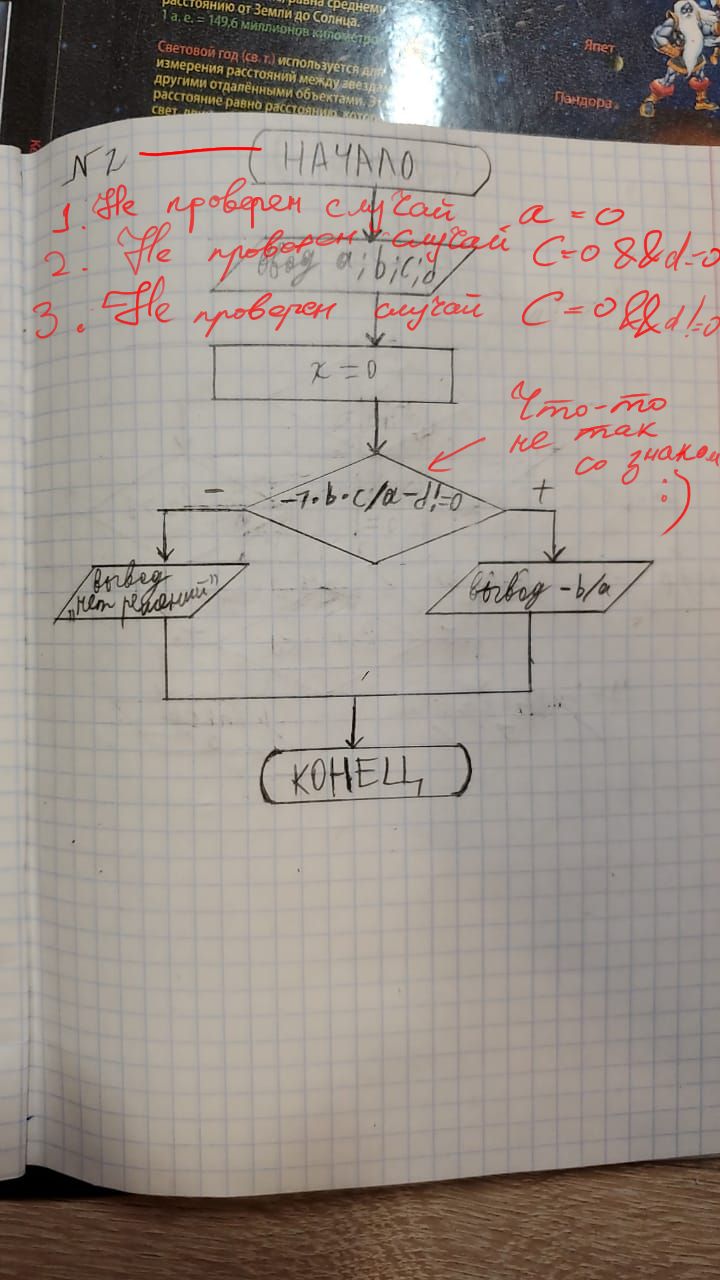 расстоянию от Земли до Солнца.
1 а. е. = 149,6 миллионов километро
Световой год (св. т.) используется для
измерения расстояний между звезда
другими отдалёнными объектами. Э
расстояние равно расстоянию, кото
Япет
Пандора
N2
НАЧАЛО
1. Не проверен случай a = 0
2. Не проверен случай C=0 && d=0
ввод a; b; c; d
3. Не проверен случай C=0 && d!=0
x = 0
Что-то
не так
со знаком
:)
-1·b·c/a-d!=0
-
+
вывод
"нет решений"
вывод -b/a
КОНЕЦ